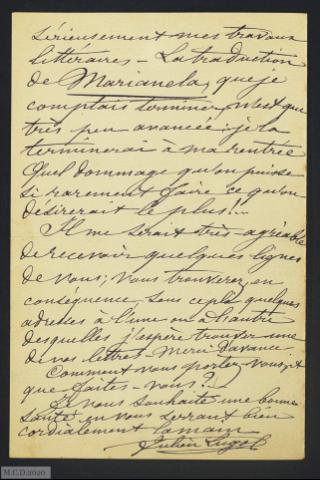 sérieusement mes travaux
littéraires – La traduction
de Marianela, que je
comptais terminer, n'est que
très peu avancée : je la
terminerai à ma rentrée
Quel dommage qu'on puisse
si rarement faire ce qu'on
désirerait le plus!..
Il me serait très agréable
de recevoir quelques lignes
de vous; vous trouverez, en
conséquence, sous ce pli quelques
adresses à l'une ou à l'autre
desquelles j'espère trouver une
de vos lettres. Merci d'avance.
Comment vous portez-vous, et
que faites-vous?
Je vous souhaite une bonne
santé en vous serrant bien
cordialement la main
Julien Lugol
M.C.D.2020